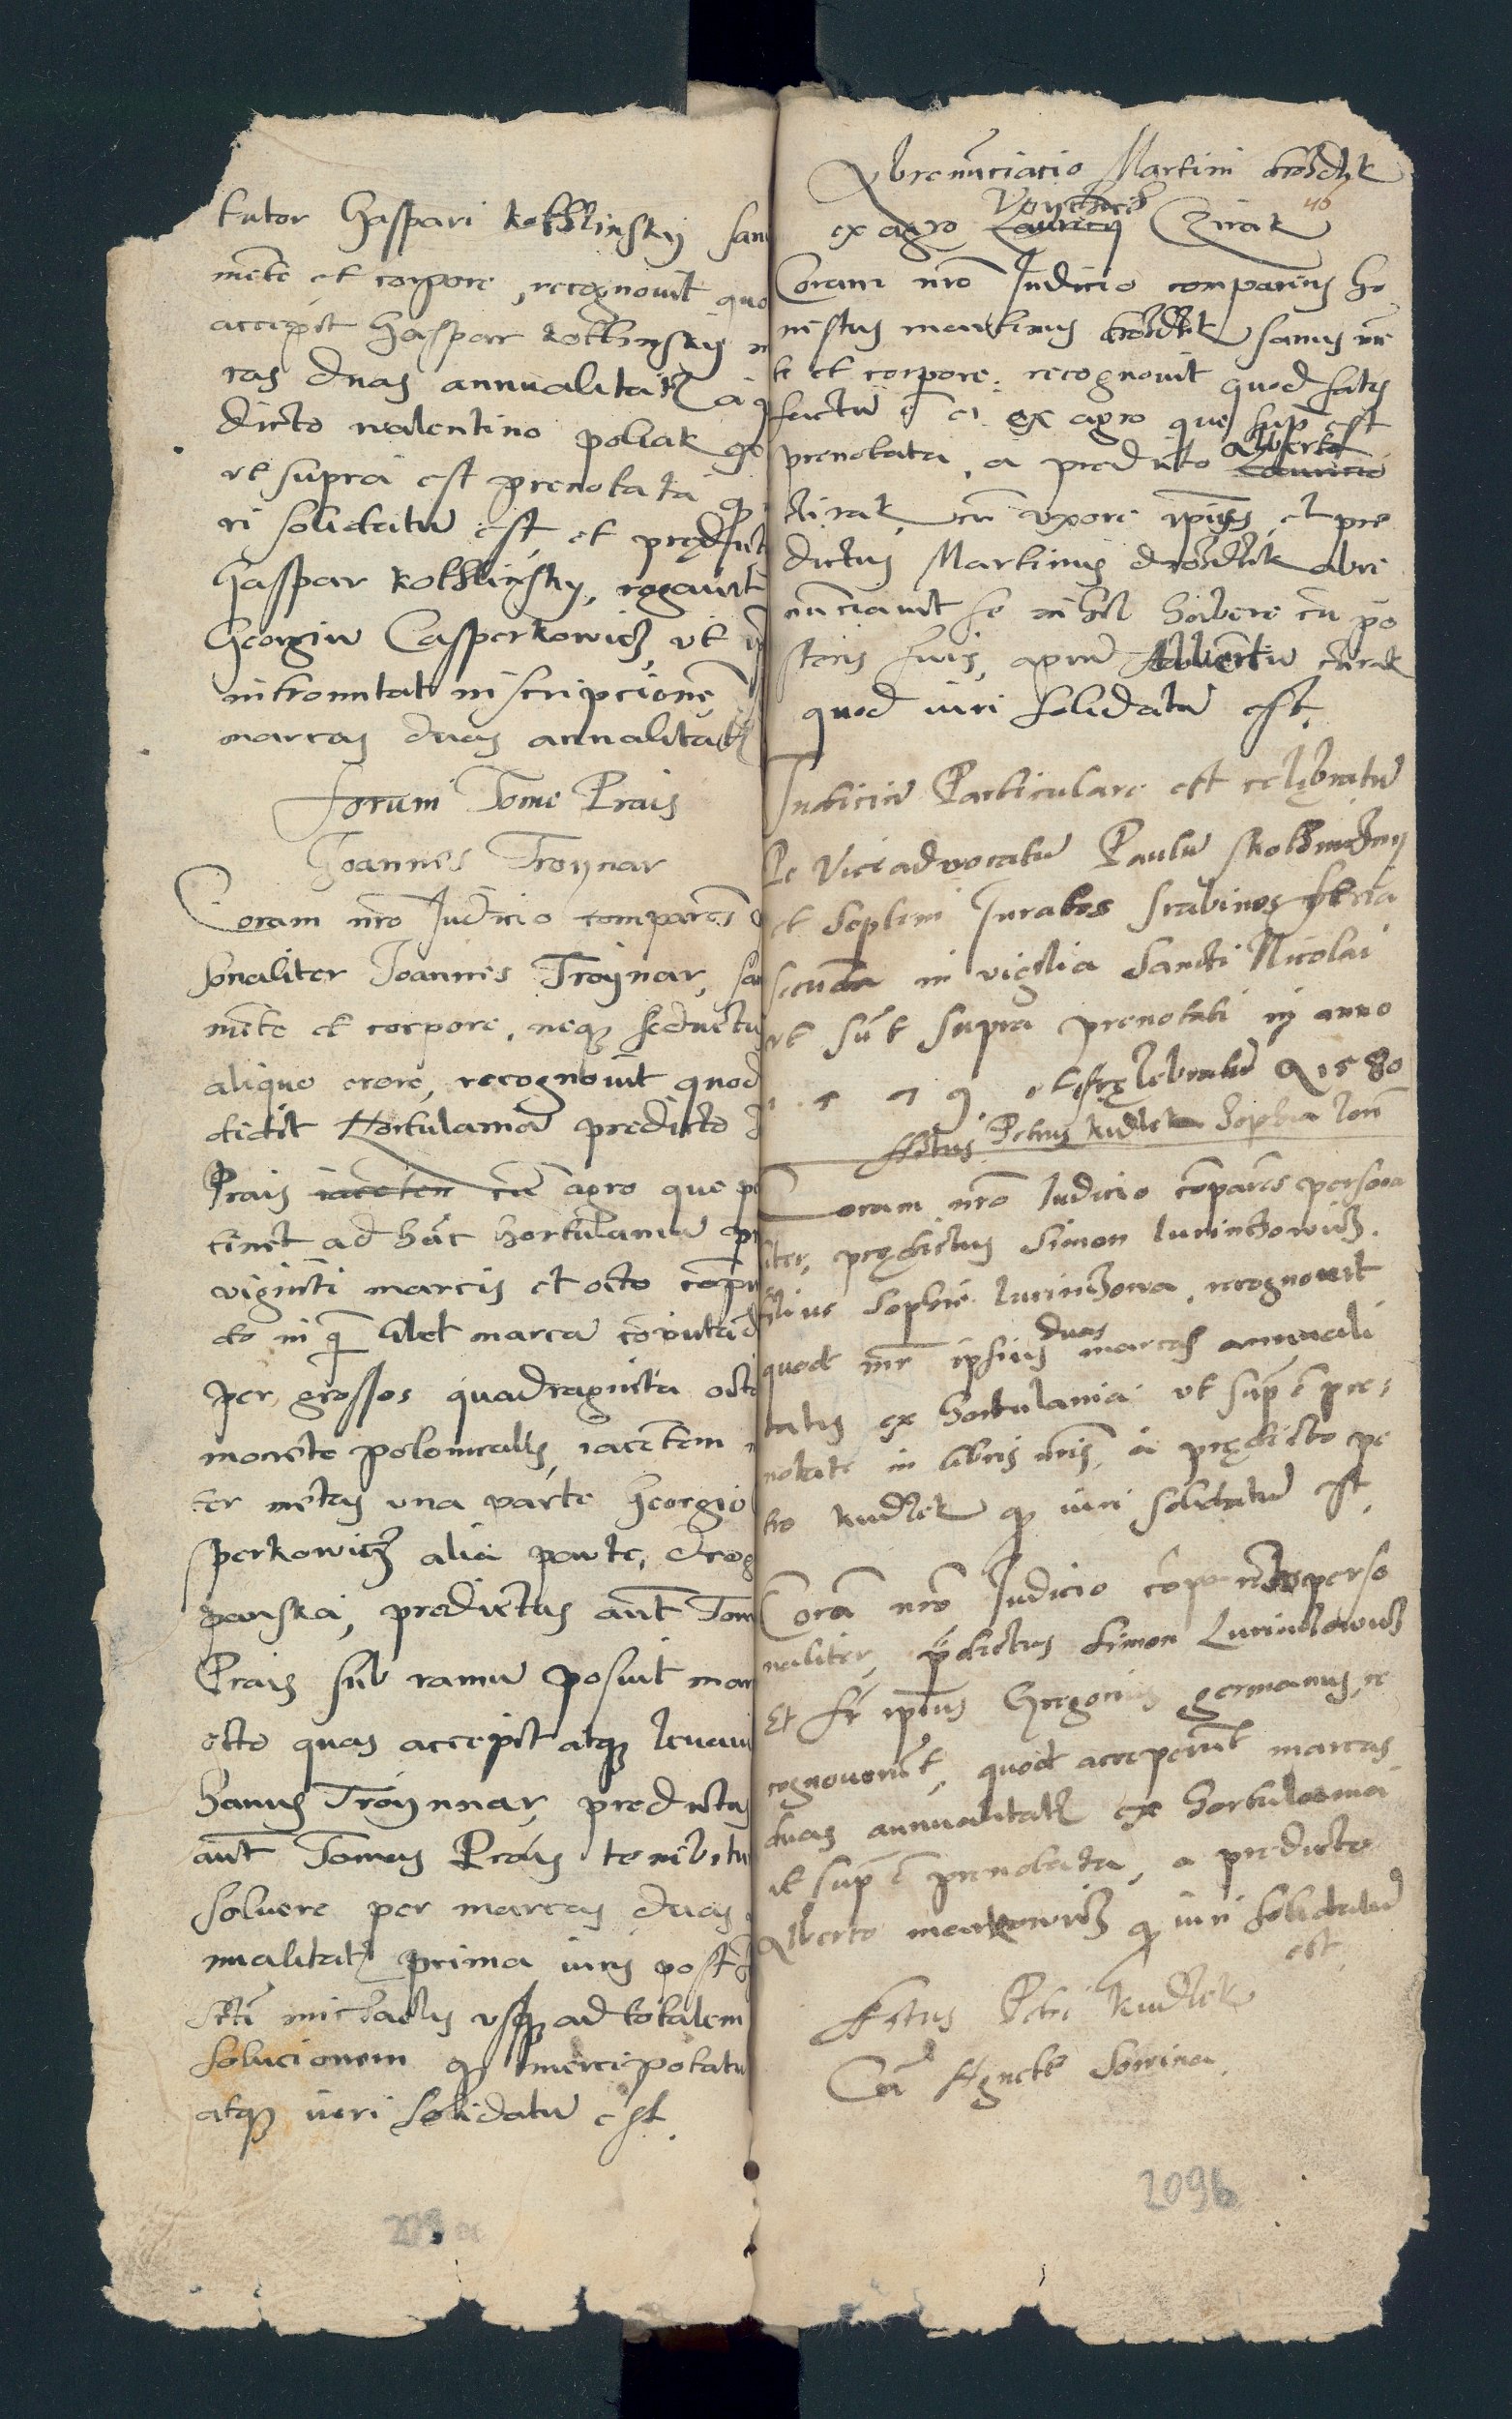 tutor Gaspari kothlinskÿ san
mēte et corpore, recognovit quo
accepit Gaspar kothlinskÿ m
cas duas annualitat a p
dicto valentino poliak
ut supra est prenotata qʒ
ri solidatū est, et prędict
Gaspar kothlinsky, rogavit
Georgiū Casperkowicz, ut
intromitat inscripcionē
marcas duas annalitat
Forum Tome Prais
Joannes Troynar
Coram nr̄o Judicio comparēs
sonaliter Joannes Troÿnar, sa
mēte et corpore, neqʒ seductus
aliquo erore, recognovit quod
dedit Hortulaniā predicto
Prais iacēten cū agro que pe
tinet ad hāc hortulaniā pr
viginti marcis et octo comp
do in q̄ libet marca cōputād
per grossos quadraginta octo
monete polonicalis, iacētem
ter metas una parte Georgio
sperkowicz alia parte, drog
panska, predictus aūt Tom
Prais sub ramū posuit mar
octo quas accepit atqʒ levavi
hanus Troÿnnar, predictus
aūt Tomas Prais tenebitu
solvere per marcas duas
nualitat prima iuris post
scti michaelis usqʒ ad totalem
solucionem qʒ mercipotatū
atqʒ iuri solidatū est.
Abrenūciacio Martini drozdzik
Voyciech 46
ex agro Lauricy Czirak
Coram nr̄o Judicio comparens ho
nestus martinus drozdzik sanus mē
te et corpore: recognovit quod satis
factū ē ei ex agro que sup̄ est
alberto
prenotata, a predicto Lauricio
czirak cū uxore ipius, et pre
dictus Martinus drozdzik abre
nūciavit se nihil habere cū po
steris suis, apud Albertū czirak
quod iuri solidatū est.
Judiciū Particulare est celębratū
Pe Viceadvocatū Paulū
et Septem Juratos scabinos feria
secūda in vigilia Sancti Nicolai
ut sūt supra prenotati in anno
1 5 7 9 est cęlebratū A 1580
Actus Petrus kudlek Sophia
Coram nr̄o Judicio cōparēs persona
liter, prędictus Simon lurinczowicz.
filius Sophie lurinczowa, recognovit
duas
quod mr̄ ipsius marcas annuali
tatis ex hortulania ut sup̄ ē pre-
notate in libris nr̄is, a prędicto pe
tro kudlek qʒ iuri solidatū est.
Corā nr̄o Judicio cōparētes perso
naliter, p̄dictus Simon Lurinczowicz
Et fr̄ ipius Gregorius germanus, re
cognoverūt, quod acceperūt marcas
duas annualitat ex hortulania
ut sup̄ ē prenotata, a predicto
Alberto markowicz qʒ iuri solidatū
est.
Actus Petri kudlek
Cū Agnete Sowina
209b